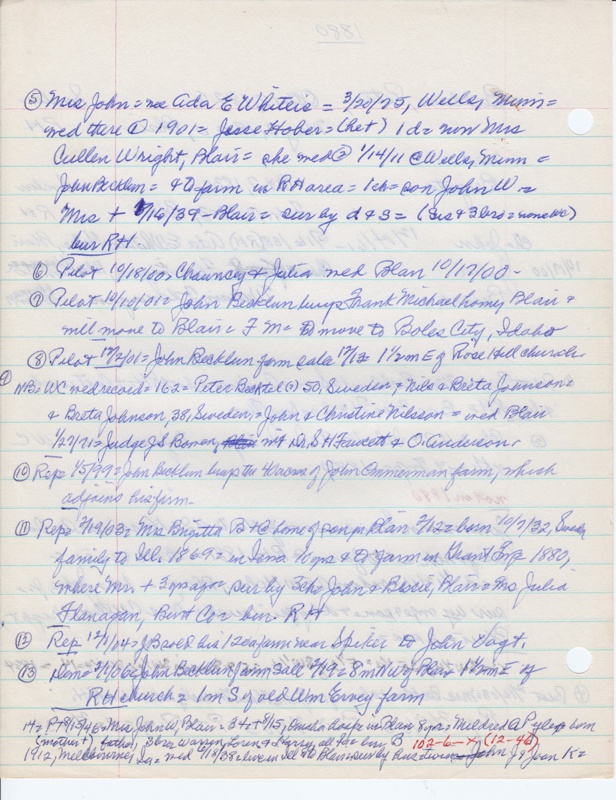 ⑤ Mrs John = nee Ada E Whiters = 3/20/75, Wells, Minn =
med there ① 1901 = Jesse Hober = (het) 1 d = now Mrs
Cullen Wright, Blair = she med ② 1/14/11 @ Wells, Minn =
John Becklun = & D farm in RH area = 1 ch = son John W =
Mrs + 9/16/39 - Blair = sur by d & s = (3 sis & 3 bros = none WC)
bur RH
⑥ Pilot 10/18/00 = Chauncey & Julia med Blair 10/17/00 -
⑦ Pilot 10/10/01 = John Becklun buys Frank Michael home, Blair &
will move to Blair = F M = to move to Boles City, Idaho
⑧ Pilot 12/2/01 = John Becklun farm sale 12/12 1½ m E of Rose Hill church
⑨
NB = WC med record = 162 = Peter Becktel (s) 50, Sweden = Nils & Breta Johnson =
& Breta Johnson, 38, Sweden, = John & Christine Nilsson = med Blair
1/27/71 = Judge J S Bowen, wit Dr. S H Fawcett & O. Anderson.
⑩ Rep = 1/5/99 = John Becklun buys the 40 acres of John Ommerman farm, which
adjoins his farm.
⑪ Rep = 2/19/03 = Mrs Brigitta B + @ home of son nr Blair 2/12 = born 10/7/32, Sweden
family to Ill. 1869 = in Iowa 10 yrs & D farm in Grant Twp 1880,
where Mr. + 3 yrs ago = sur by 3 ch = John & Bessie, Blair = Mrs Julia
Flanagan, Burt Co = bur. RH
⑫ Rep 12/1/04 = J B sold his 120 a farm near Spiker to John Vogt.
⑬ Dem = 2/1/06 = John Becklun farm sale 2/19 = 8 m NW of Blair 1½ m E of
RH church = 1 m S of old Wm Ervey farm
14 = P + 9/13/46 = Mrs John W, Blair = 34 + 9/15, Omaha hosp = in Blair 8 yrs = Mildred A Pyle = born
(mother +) father, 3 bro Warren, Loren, & Harry, all Ia = bur B 102-6-X (12-46)
1912, Melbourne, Ia = med 1938 = live in Ill to Blair = sur by hus twins John J & Joan K =